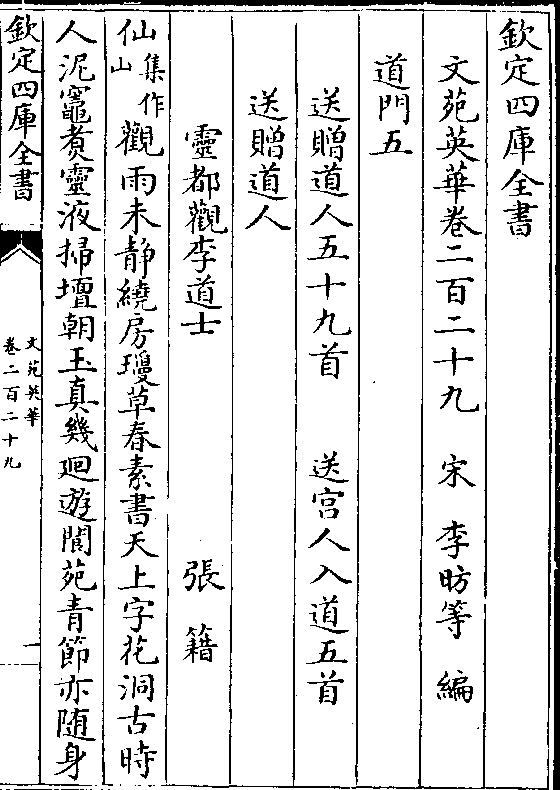 欽定四庫全書
文苑英華卷二百二十九 宋 李昉等 編
道門五
送贈道人五十九首 送宫人入道五首
送贈道人
靈都觀李道士 張籍
仙集作山觀雨未静繞房瓊草春素書天上字花洞古時
人泥竈煑靈液掃壇朝玉真幾廻遊閬苑青節亦随身
欽定四庫全書
文苑英華
卷二百二十九
一